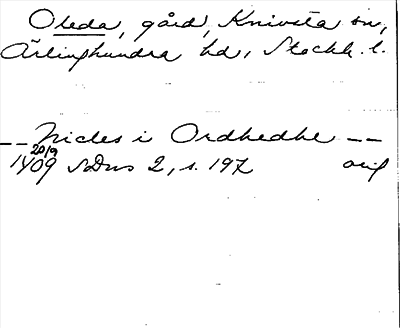 Oleda, gård, Knivsta sn,
Ärlinghundra hd, Stockh. l.
__ Nicles i Ordhedhe __
20/9
1409 SDns 2, s. 197 orig